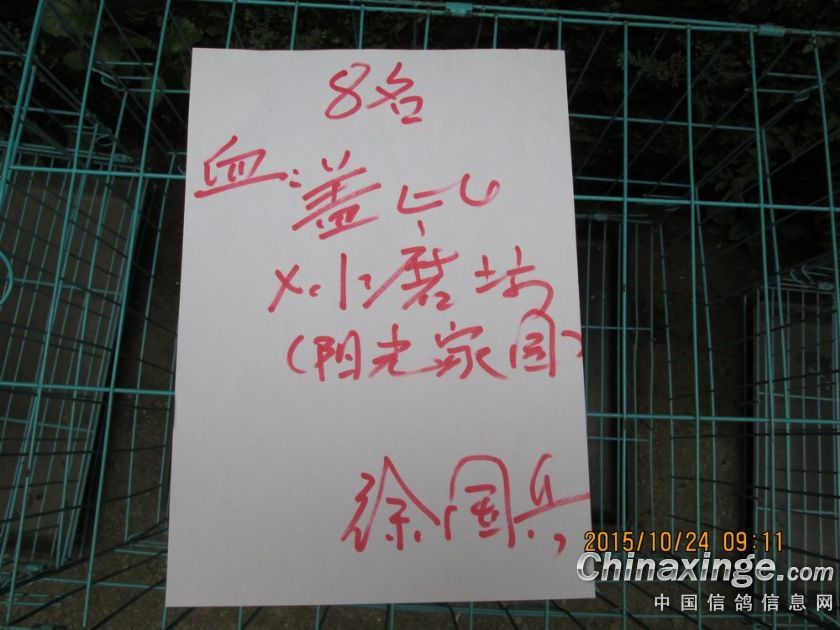 8名
血:盖比
x小磨坊
(阳光家园)
徐国兵
2015/10/24 09:11
Chinaxinge.com
中国信鸽信息网